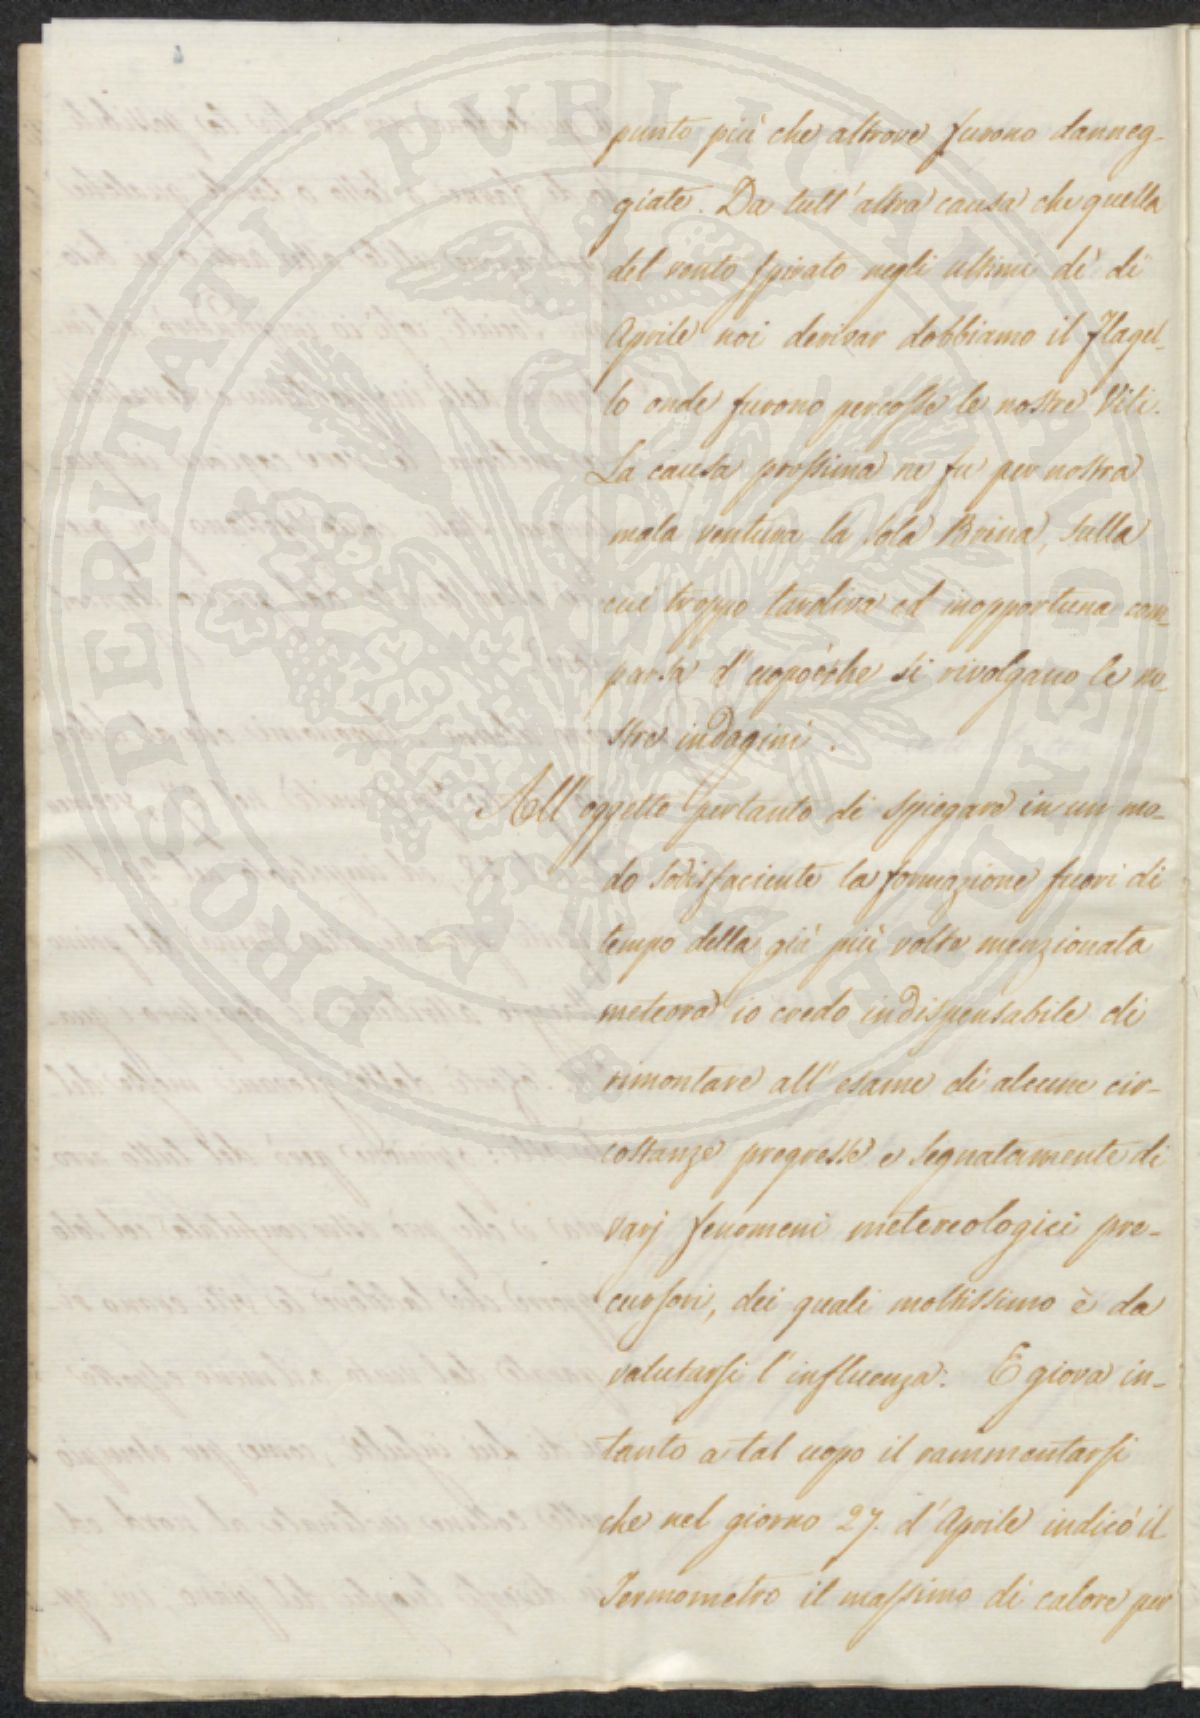 punto più che altrove furono danneg-
giate. Da tutt' altra causa che quella
del vento spirato negli ultimi dì di
Aprile noi derivar dobbiamo il flagel-
lo onde furono percosse le nostre Viti.
La causa prossima ne fu per nostra
mala ventura la sola Brina, sulla
cui troppo tardiva ed inopportuna com-
parsa d' uopo è che si rivolgano le no-
stre indagini.
All' oggetto pertanto di spiegare in un mo-
do sodisfaciente la formazione fuori di
tempo della già più volte menzionata
meteora io credo indispensabile di
rimontare all' esame di alcune cir-
costanze progresse e segnatamente di
varj fenomeni metereologici pre-
cursori, dei quali moltissimo è da
valutarsi l' influenza. E giova in-
tanto a tal uopo il rammentarsi
che nel giorno 27. d' Aprile indicò il
Termometro il massimo di calore per
PROSPERITATI PUBLICAE AUGENDAE